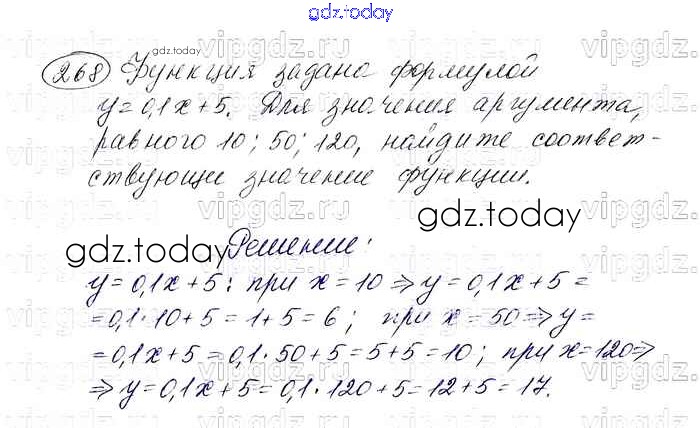 gdz.today
268 Функция задана формулой
y=0,1x+5. Для значения аргумента,
равного 10; 50; 120, найдите соответ-
ствующее значение функции.
gdz.today
gdz.today
gdz.today
Решение:
y=0,1x+5: при x=10 ⇒ y=0,1x+5=
=0,1·10+5=1+5=6; при x=50 ⇒ y=
=0,1x+5=0,1·50+5=5+5=10; при x=120 ⇒
⇒ y=0,1x+5=0,1·120+5=12+5=17.
vipgdz.ru